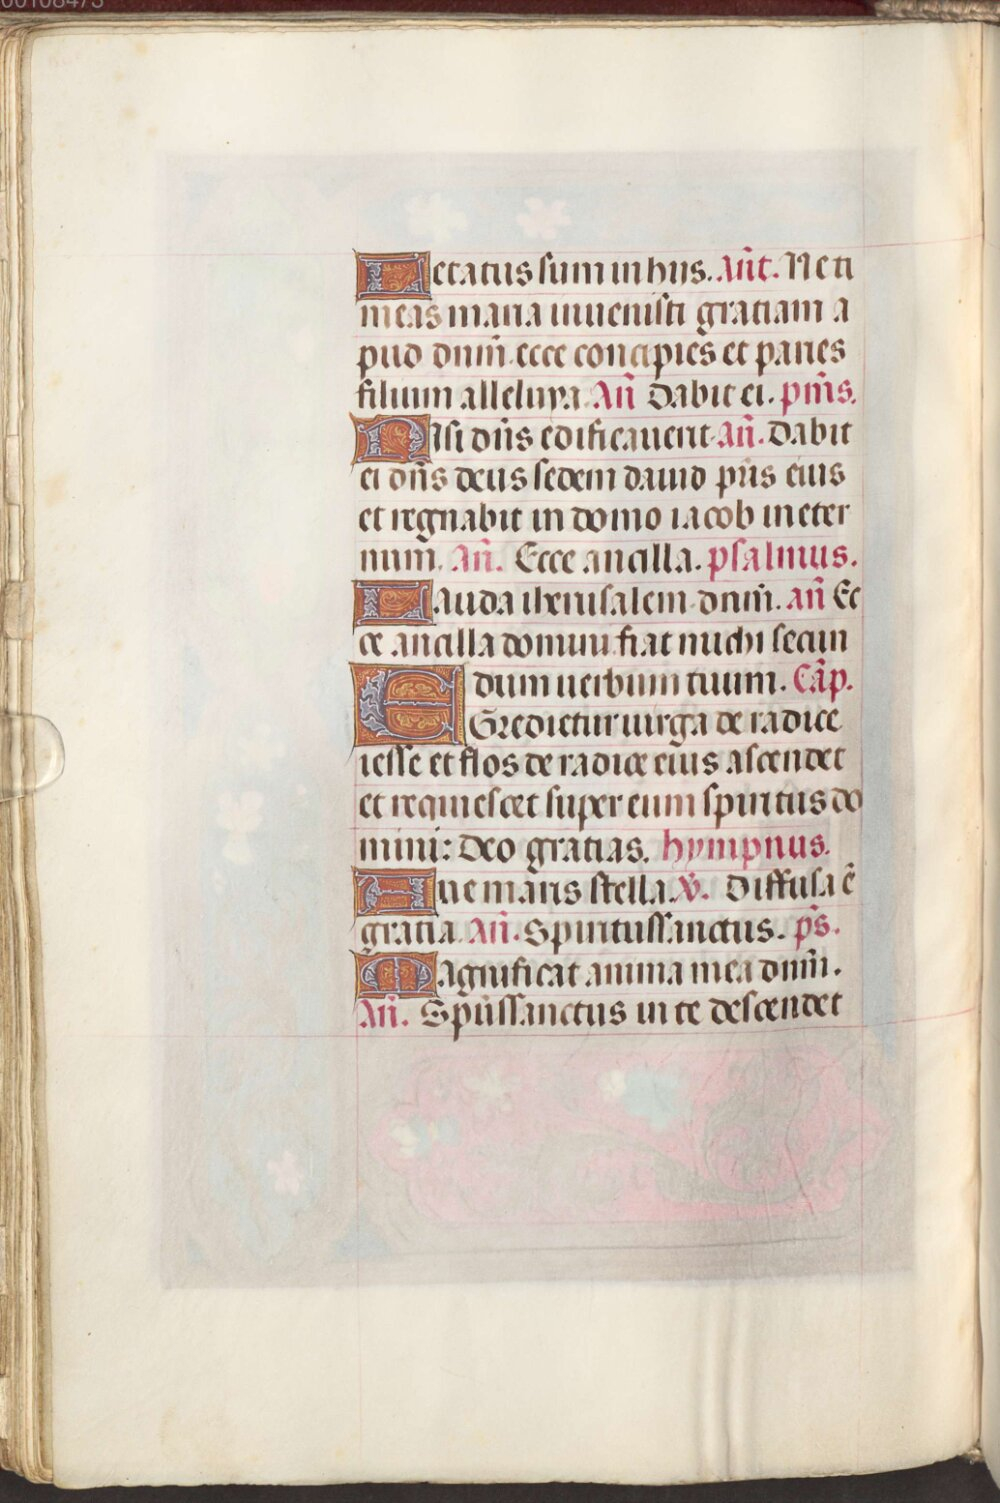 00108473
Letatus sum in hijs. Añt. Ne ti
meas maria inuenisti gratiam a
pud dnm̄. ecce concipies et paries
filium alleluya. Añ Dabit ei. pm̄s.
Nisi dn̄s edificauerit. añ. Dabit
ei dn̄s deus sedem dauid pr̄is eius
et regnabit in domo iacob in eter
num. Añ. Ecce ancilla. psalmus.
Lauda iherusalem dnm̄. añ Ec
ce ancilla domini fiat michi secun
dum uerbum tuum. Cāp.
EGredietur uirga de radice
iesse et flos de radice eius ascendet
et requiescet super eum spiritus do
mini: Deo gratias. hympnus.
Aue maris stella. v̄. Diffusa ē
gratia. Añ. Spiritussanctus. ps̄.
Magnificat anima mea dnm̄.
Añ. Spūssanctus in te descendet